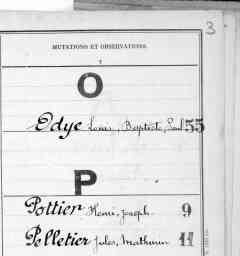 3
MUTATIONS ET OBSERVATIONS.
O
Edye Louis, Baptiste, Paul 55
P
Pottier Henri, Joseph 9
Pelletier Jules, Mathurin 11